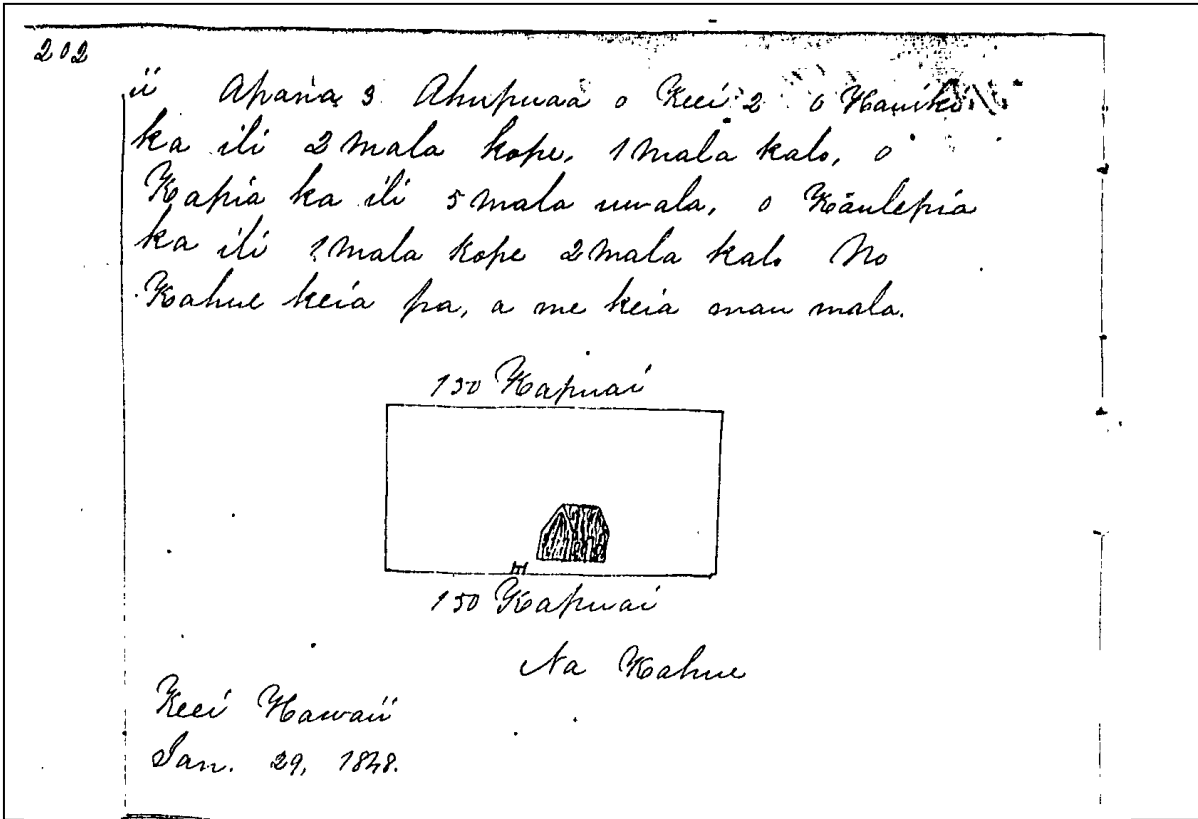 202
ii Apana 3 Ahupuaa o Keei 2 o
ka ili 2 mala kope, 1 mala kalo, o
Kapia ka ili 5 mala uwala, o Kaulepia
ka ili 1 mala kope 2 mala kalo No
Kahue keia pa, a me keia mau mala.
130 Kapuai
150 Kapuai
Na Kahue
Keei Hawaii
Jan. 29, 1848.